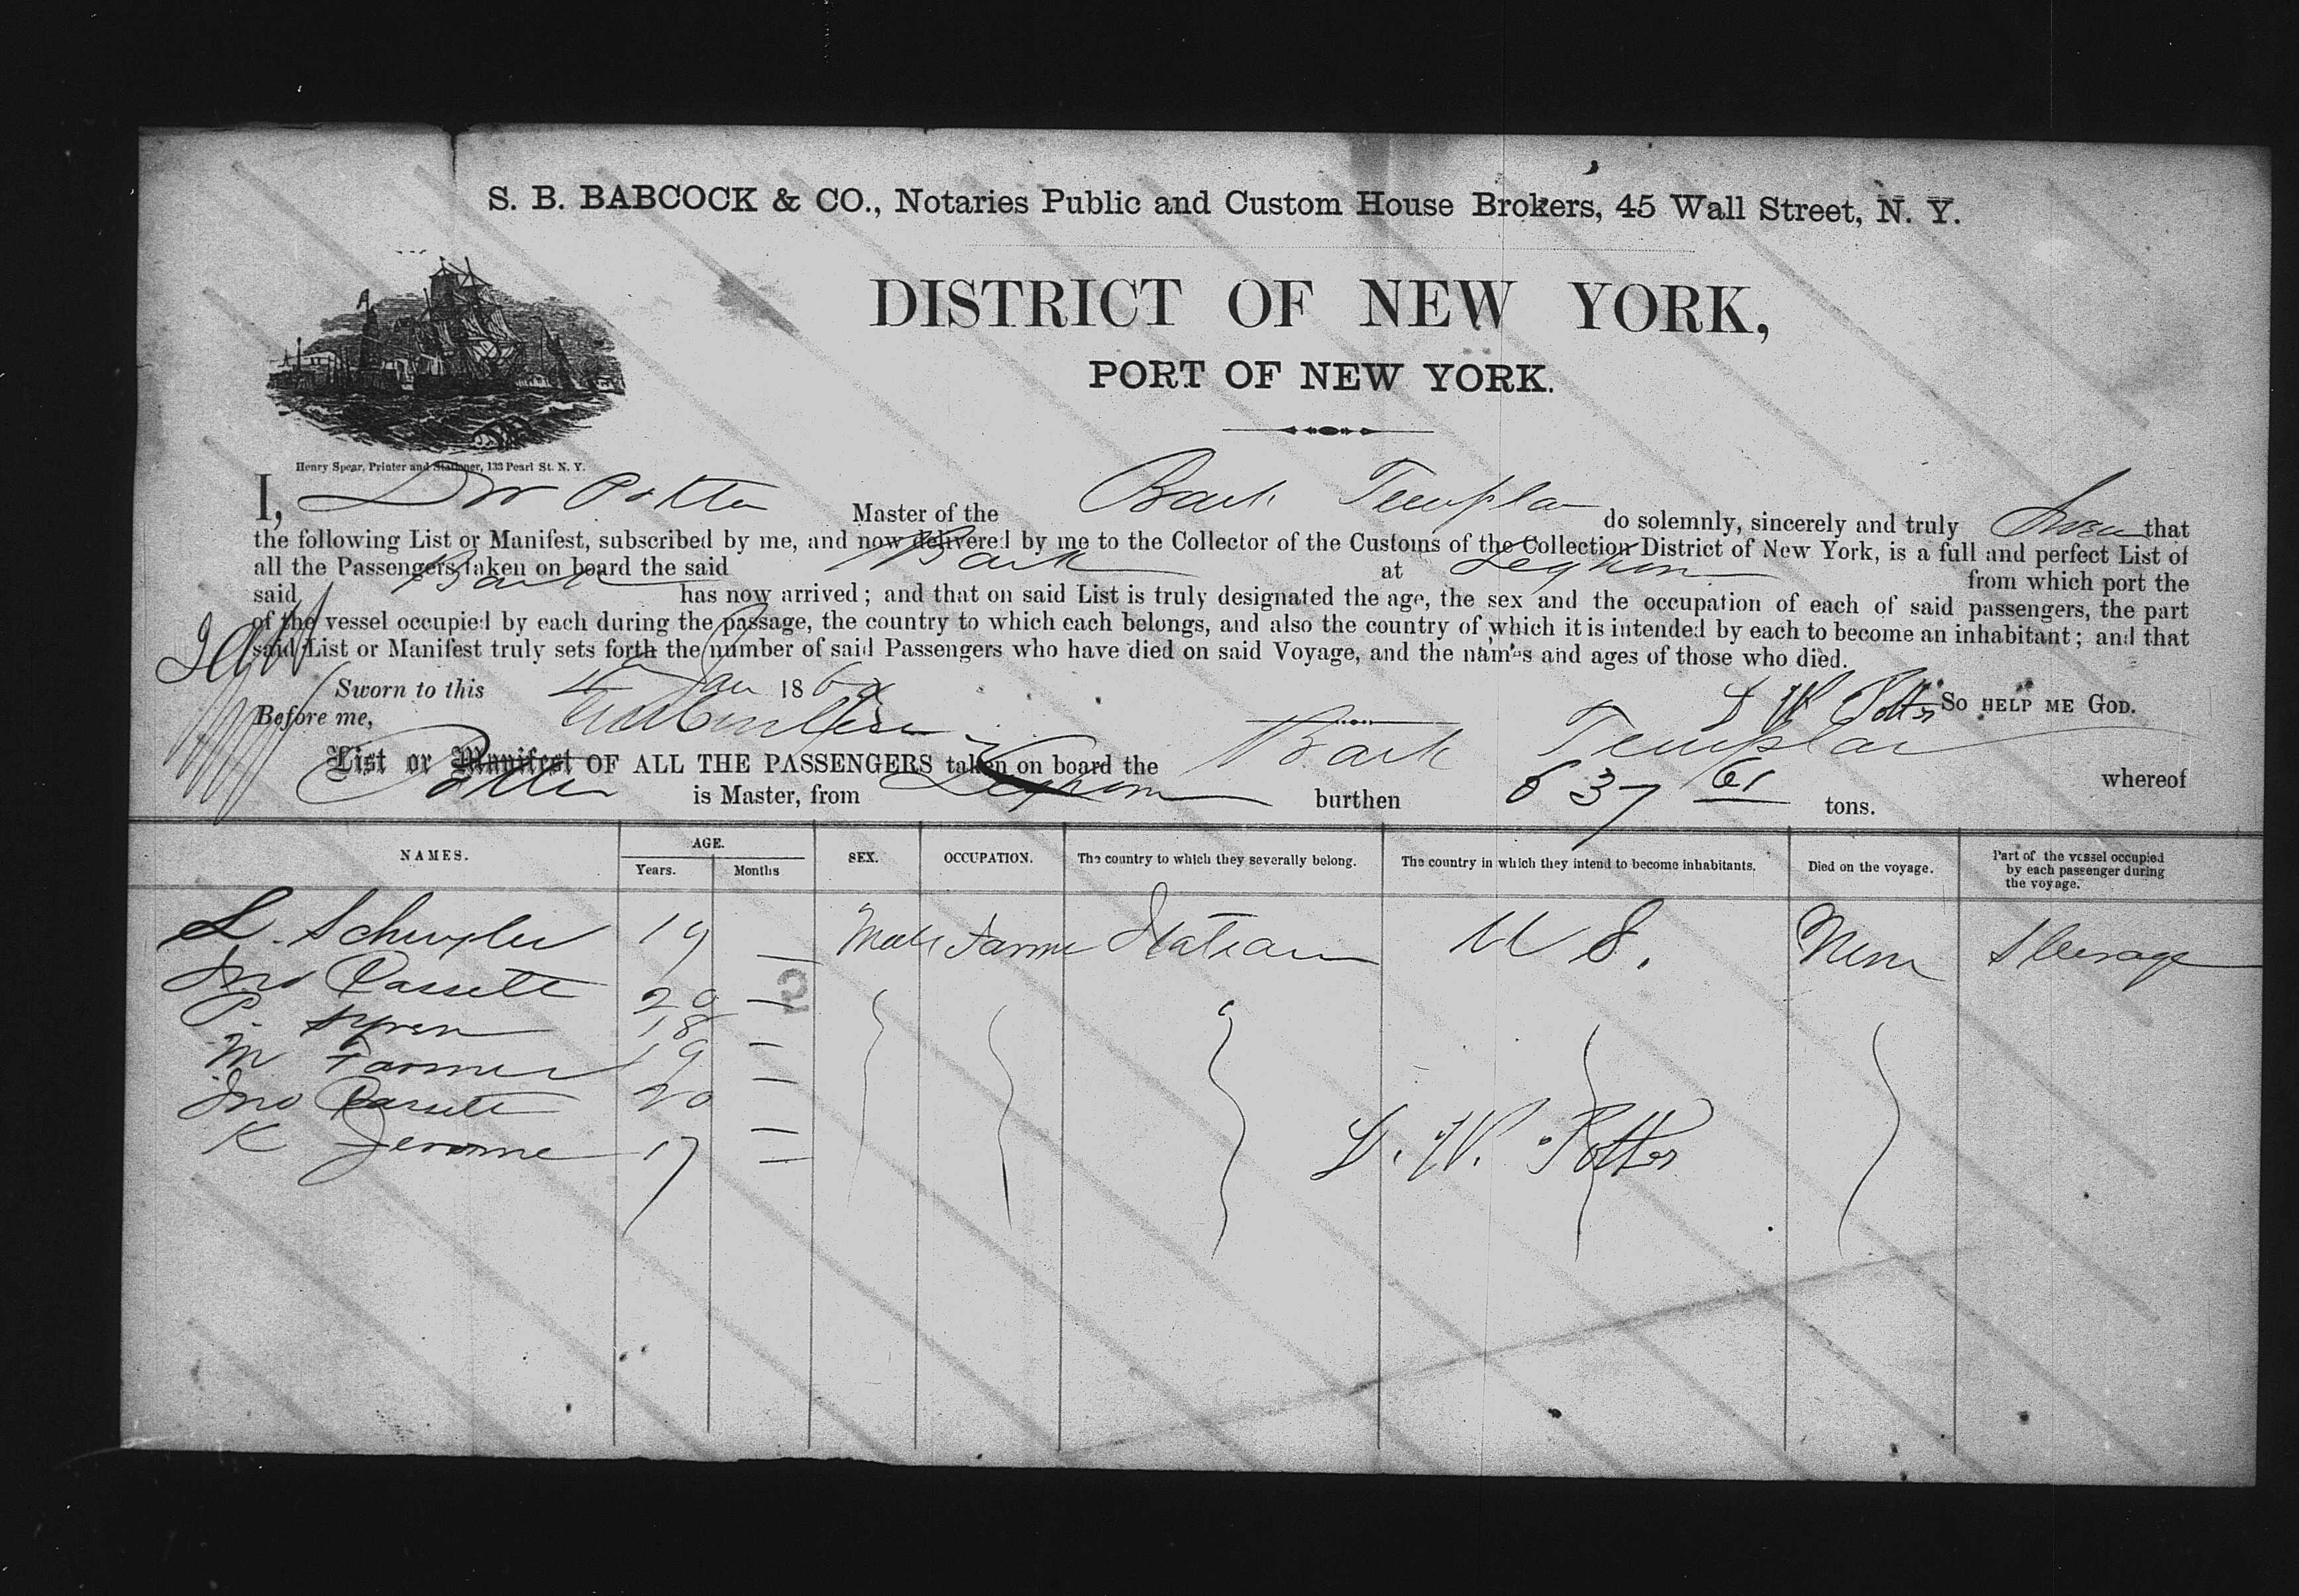 S. B. BABCOCK & CO., Notaries Public and Custom House Brokers, 45 Wall Street, N. Y.
DISTRICT OF NEW YORK,
PORT OF NEW YORK.
Henry Spear, Printer and Stationer, 133 Pearl St. N. Y.
I, D W Potter Master of the Bark Templar do solemnly, sincerely and truly Swear that
the following List or Manifest, subscribed by me, and now delivered by me to the Collector of the Customs of the Collection District of New York, is a full and perfect List of
all the Passengers taken on board the said Bark at Leghorn from which port the
said Bark has now arrived; and that on said List is truly designated the age, the sex and the occupation of each of said passengers, the part
of the vessel occupied by each during the passage, the country to which each belongs, and also the country of which it is intended by each to become an inhabitant; and that
said List or Manifest truly sets forth the number of said Passengers who have died on said Voyage, and the names and ages of those who died.
Sworn to this Jan 186 So HELP ME GOD.
Before me, D W Potter
List or Manifest OF ALL THE PASSENGERS taken on board the Bark Templar whereof
Potter is Master, from Leghorn burthen 637 61 tons.
NAMES. AGE. Years. Months SEX. OCCUPATION. The country to which they severally belong. The country in which they intend to become inhabitants. Died on the voyage. Part of the vessel occupied by each passenger during the voyage.
L. Schuyler 19 — Male Farmer Italian U S. None Steerage
Jno Cassett 29 —
P. 18 —
M Farmer 19 —
Jno 20 —
K Jerome 17 —
D. W. Potter